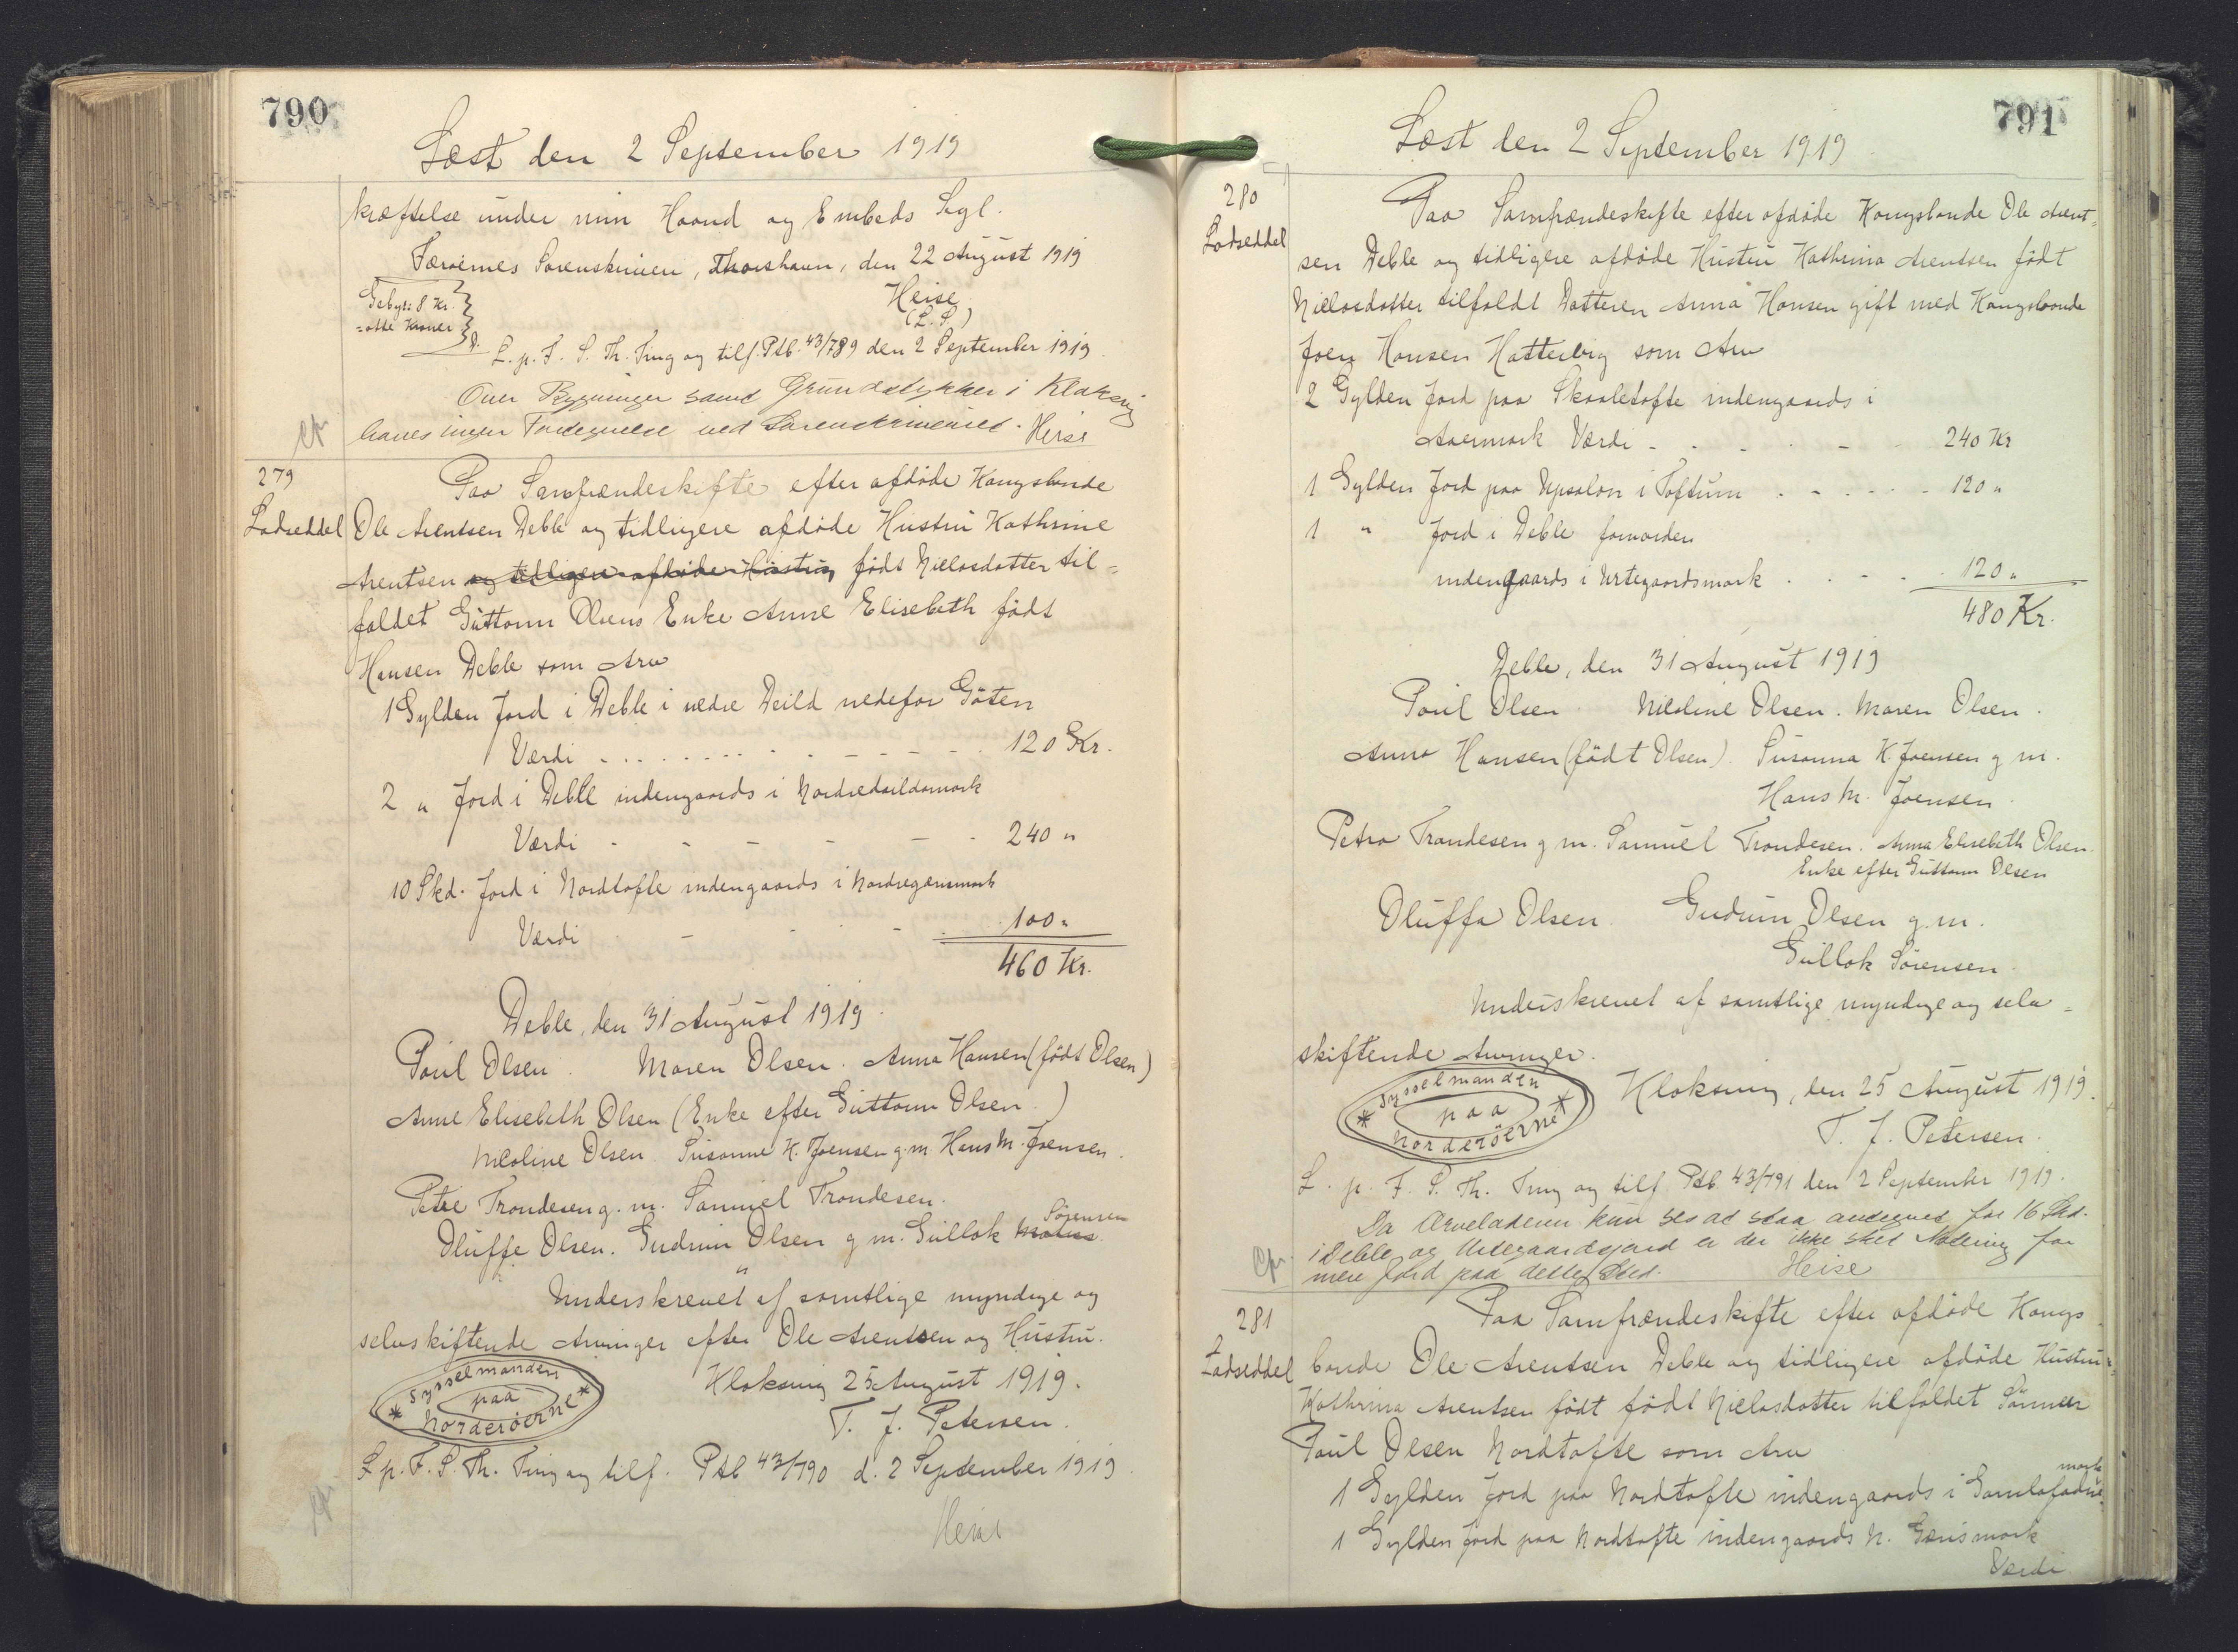 790
Læst den 2 September 1919
kræftelse under min Haand og Embeds Segl.
Færøernes Sorenskriveri, Thorshavn, den 22 August 1919
Gebyr: 8 Kr.
= otte Kroner
Heise
(L.S.)
L. p. F. S. Th. Ting og tilf. Ptb. 43/789 den 2 September 1919.
Over Bygninger samt Grundstykker i Klaksvig
haves ingen Fortegnelse ved Sorenskriveriet. Heise
279
Lodseddel
Paa Samfrændeskifte efter afdøde Kongsbonde
Ole Arentsen Deble og tidligere afdøde Hustru Kathrine
Arentsen og tidligere afdøde Hustru, født Nielsdatter til-
faldet Guttorm Olsens Enke Anne Elisebeth født
Hansen Deble som Arv
1 Gylden Jord i Deble i nedre Deild nedefor Göten
Værdi - - - - - - - - 120 Kr.
2 " Jord i Deble indengaards i Nordredeildsmark
Værdi - - - - - - 240 "
10 Skd. Jord i Nordtofte indengaards i Nordregærismark
Værdi - - - 100 "
460 Kr.
Deble, den 31 August 1919.
Poul Olsen. Maren Olsen. Anna Hansen (født Olsen)
Anne Elisebeth Olsen (Enke efter Guttorm Olsen.)
Nicoline Olsen. Susanne K. Joensen g.m. Hans M. Joensen.
Petre Trondesen g. m. Samuel Trondesen.
Sørensen
Oluffe Olsen. Gudrun Olsen g m. Gullak
Underskrevet af samtlige myndige og
selvskiftende Arvinger efter Ole Arentsen og Hustru.
Sysselmanden
paa
Norderøerne
Klaksvig 25 August 1919.
T. J. Petersen.
L. p. F. S. Th. Ting og tilf. Ptb 43/790 d. 2 September 1919.
Heise
791
Læst den 2 September 1919
280
Lodseddel
Paa Samfrændeskifte efter afdøde Kongsbonde Ole Arent-
sen Deble og tidligere afdøde Hustru Kathrina Arentsen født
Nielsdatter tilfaldt Datteren Anna Hansen gift med Kongsbonde
Joen Hansen Hattevig som Arv
2 Gylden Jord paa Skaaletofte indengaards i
Aaermark Værdi - - - - 240 Kr
1 Gylden Jord paa Upsalon i Toftum - - - - - 120 "
1 " Jord i Deble fornorden
indengaards i Urtegaardsmark - - - - 120 "
480 Kr.
Deble, den 31 August 1919
Poul Olsen. Nicoline Olsen. Maren Olsen.
Anna Hansen (født Olsen). Susanna K. Joensen g m.
Hans M. Joensen.
Petra Trondesen g m. Samuel Trondesen. Anna Elisebeth Olsen.
Enke efter Guttorm Olsen
Oluffa Olsen. Gudrun Olsen g.m.
Gullak Sørensen.
Underskrevet af samtlige myndige og selv-
skiftende Arvinger.
Sysselmanden
paa
Norderøerne
Klaksvig, den 25 August 1919.
T. J. Petersen.
L. p. F. S. Th. Ting og tilf. Ptb. 43/791 den 2 September 1919.
Da Arveladeren kun ses at staa antegnet for 16 Skd.
i Deble og Urtegaardsjord er der ikke sket Notering for
mere Jord paa dette Sted. Heise
281
Lodseddel
Paa Samfrændeskifte efter afdøde Kongs
bonde Ole Arentsen Deble og tidligere afdøde Hustru
Kathrina Arentsen født født Nielsdatter tilfaldet Sönnen
Poul Olsen Nordtofte som Arv
mark
1 Gylden Jord paa Nordtofte indengaards i
1 Gylden Jord paa Nordtofte indengaards N. Gærismark
Værdi